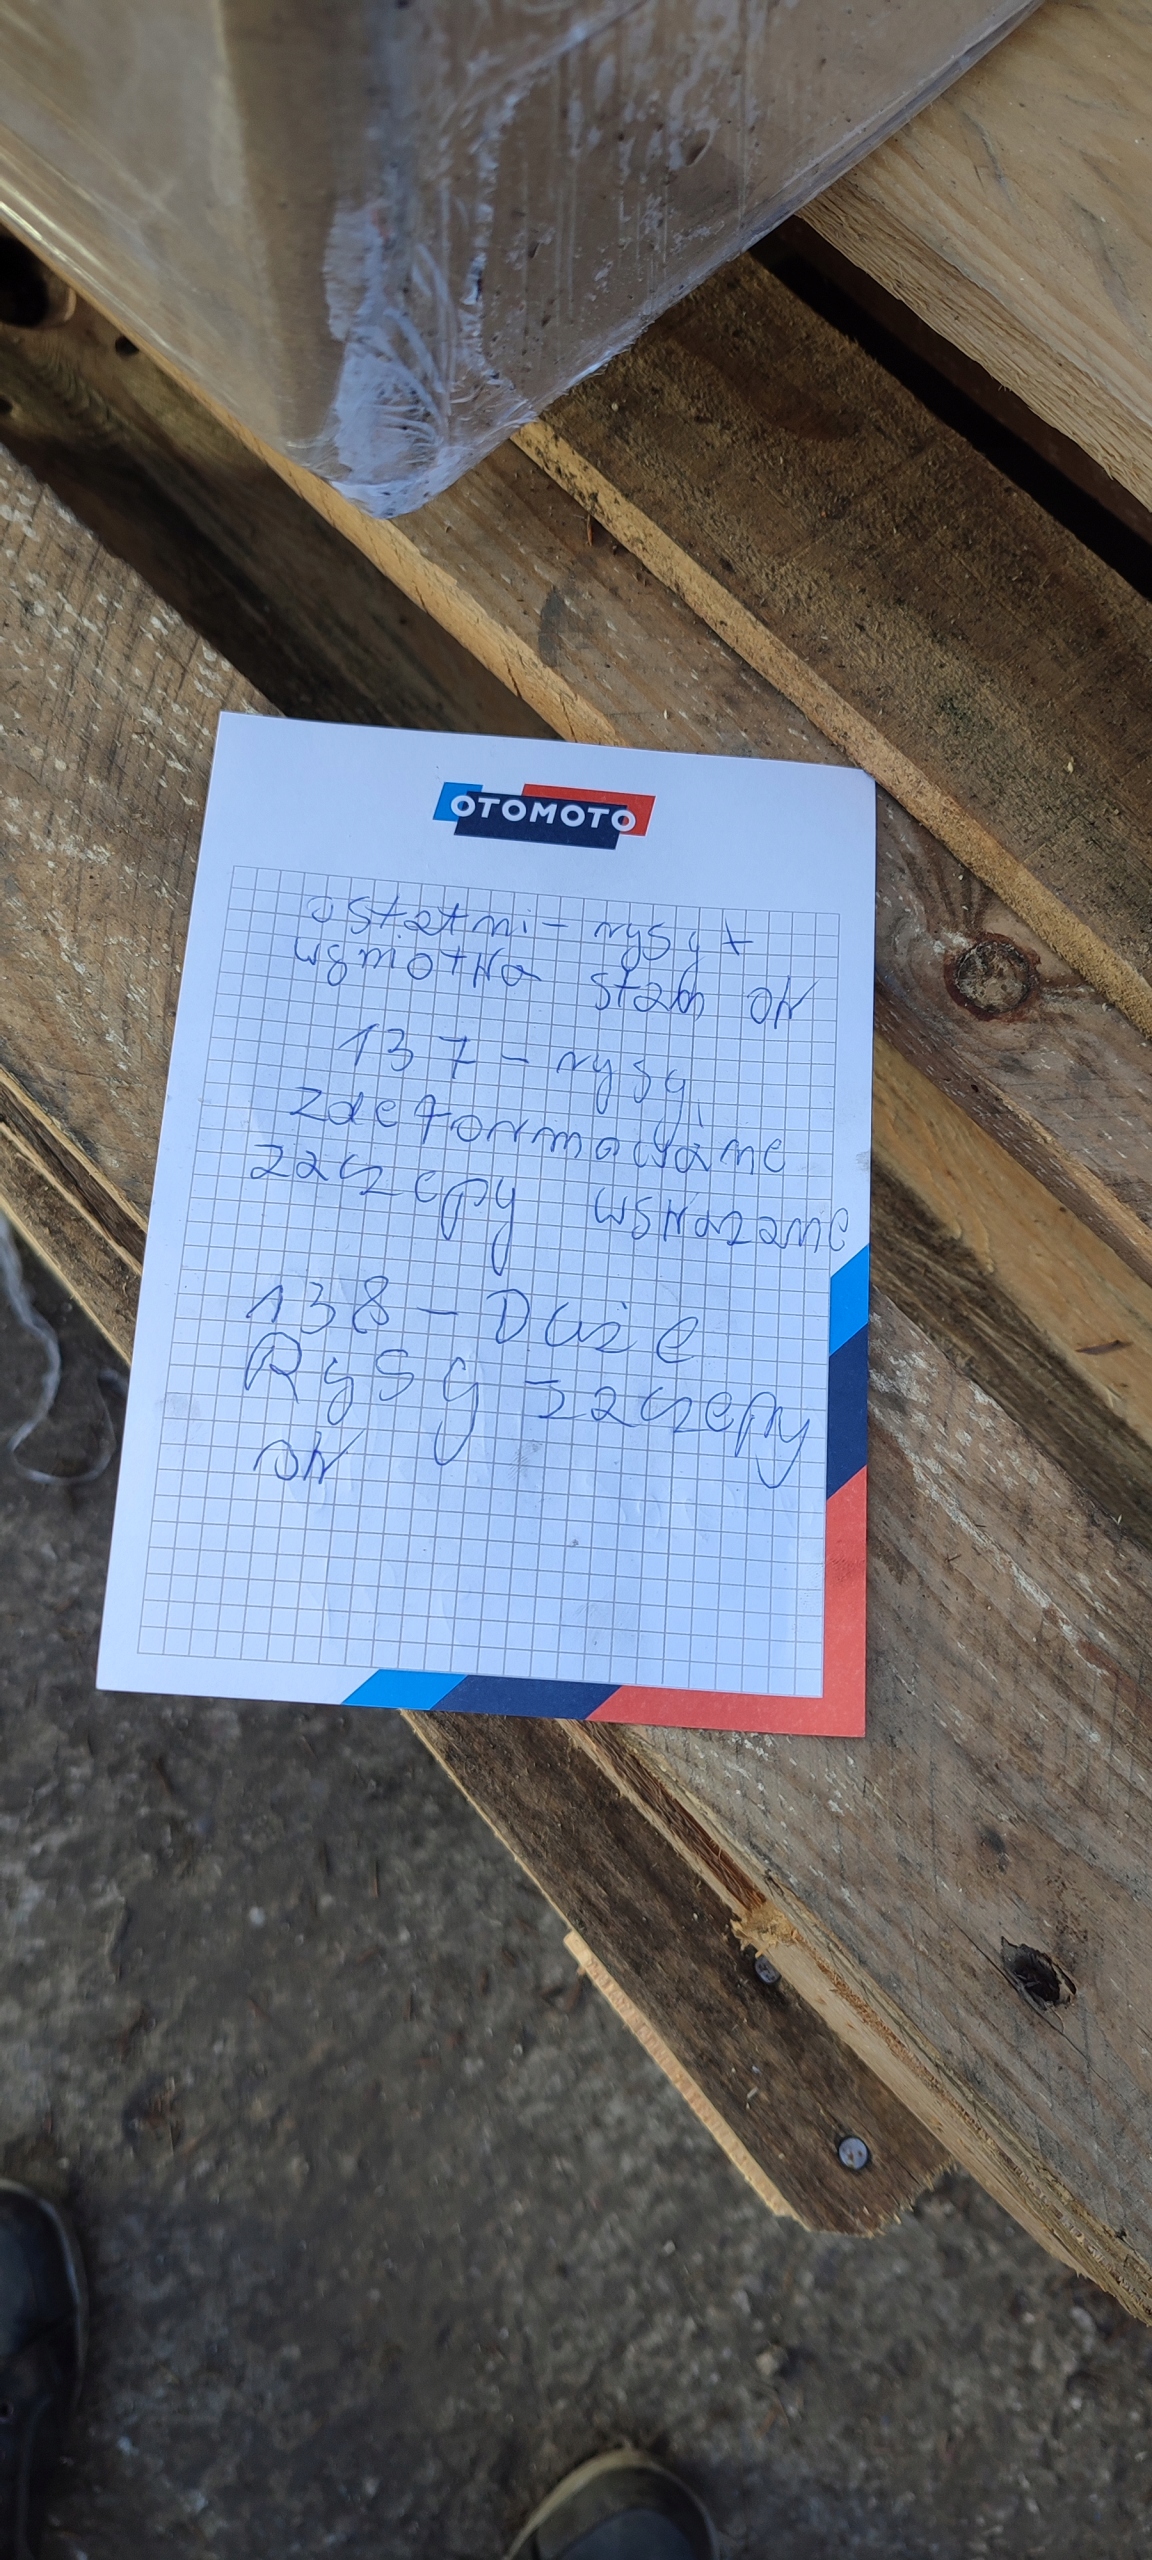 OTOMOTO
ostatni - rysy +
wgniotka stan ok
137 - rysy,
zdeformowane
zaczepy wskazane
138 - Duże
Rysy zaczepy
ok